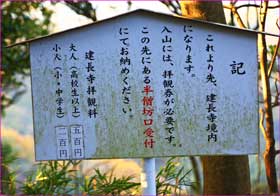 記
これより先、建長寺境内
になります。
入山には、拝観券が必要です。
この先にある半僧坊口受付
にてお納めください。
建長寺拝観料
大人（高校生以上）五百円
小人（小・中学生）二百円